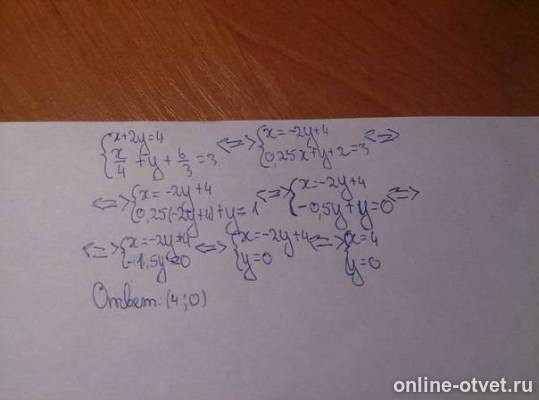 {x+2y=4 {x/4+y+6/3=3 <=> {x=-2y+4 {0,25x+y+2=3 <=>
<=> {x=-2y+4 {0,25(-2y+4)+y=1 <=> {x=-2y+4 {-0,5y+y=0 <=>
<=> {x=-2y+4 {-1,5y=0 <=> {x=-2y+4 {y=0 <=> {x=4 {y=0
Ответ: (4;0)
online-otvet.ru